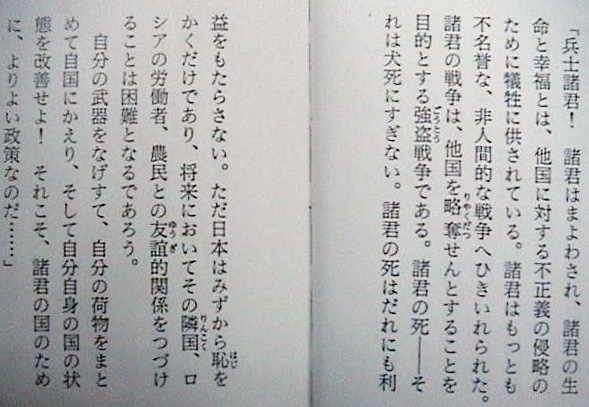 「兵士諸君！　諸君はまよわされ、諸君の生
命と幸福とは、他国に対する不正義の侵略の
ために犠牲に供されている。諸君はもっとも
不名誉な、非人間的な戦争へひきいれられた。
諸君の戦争は、他国を略奪せんとすることを
目的とする強盗戦争である。諸君の死――そ
れは犬死にすぎない。諸君の死はだれにも利
益をもたらさない。ただ日本はみずから恥を
かくだけであり、将来においてその隣国、ロ
シアの労働者、農民との友誼的関係をつづけ
ることは困難となるであろう。
　自分の武器をなげすて、自分の荷物をまと
めて自国にかえり、そして自分自身の国の状
態を改善せよ！　それこそ、諸君の国のため
に、よりよい政策なのだ……」